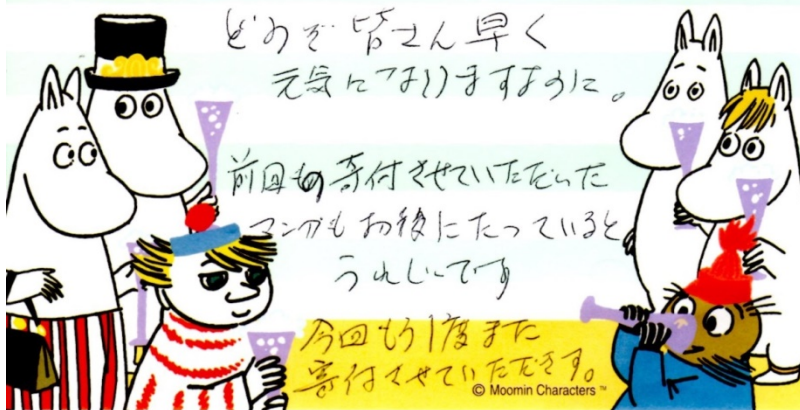 どうぞ皆さん早く
元気になりますように。
前回も寄付させていただいた
マンガもお役にたっていると
うれしいです
今回もう1度また
寄付させていただきます。
© Moomin Characters ™